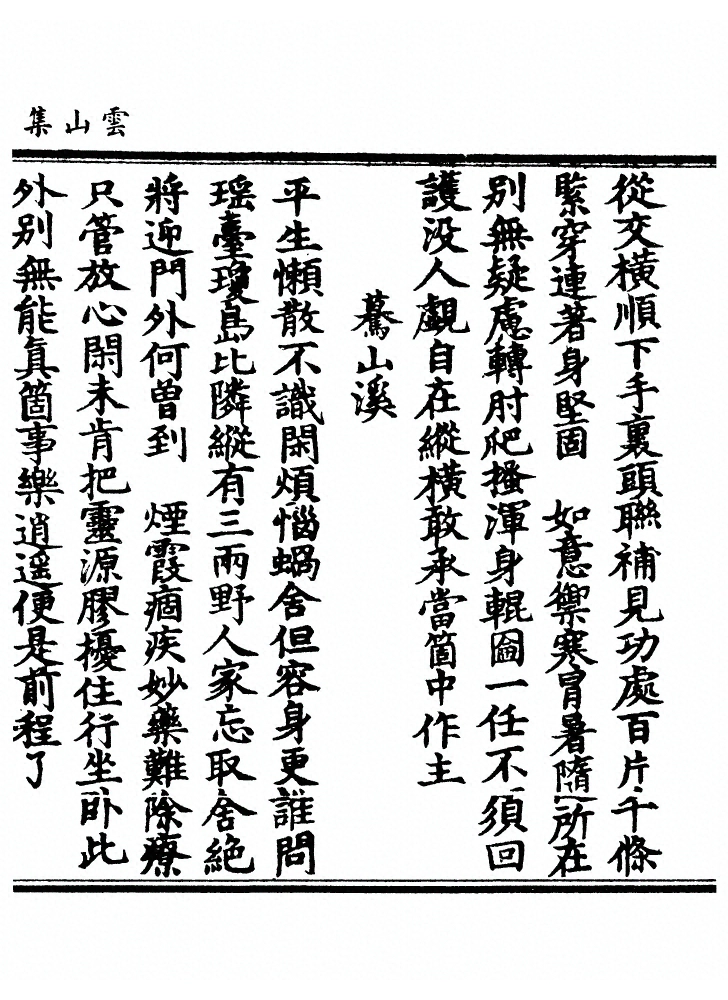 雲山集
從交橫順下手裏頭聯補見功處百片千條
緊穿連著身堅固　如意禦寒冒暑隨所在
別無疑慮轉肘爬搔渾身輥圇一任不須回
護没人覷自在縱橫敢承當箇中作主
驀山溪
平生懶散不識閑煩惱蝸舍但容身更誰問
瑶臺瓊島比隣縱有三兩野人家忘取舍絶
將迎門外何曾到　煙霞痼疾妙藥難除療
只管放心閑未肯把靈源膠擾住行坐卧此
外別無能真箇事樂逍遥便是前程了